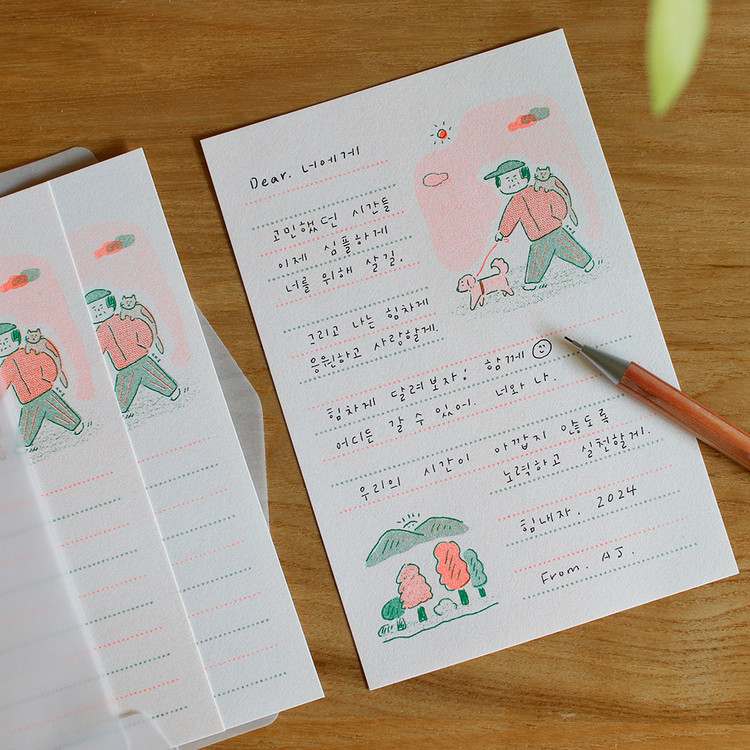 Dear. 너에게
고민했던 시간들
이제 심플하게
너를 위해 살길,
그리고 나는 힘차게
응원하고 사랑할게.
힘차게 달려보자! 함께
어디든 갈 수 있어. 너와 나.
우리의 시간이 아깝지 않도록
노력하고 실천할게.
힘내자. 2024
From. AJ.